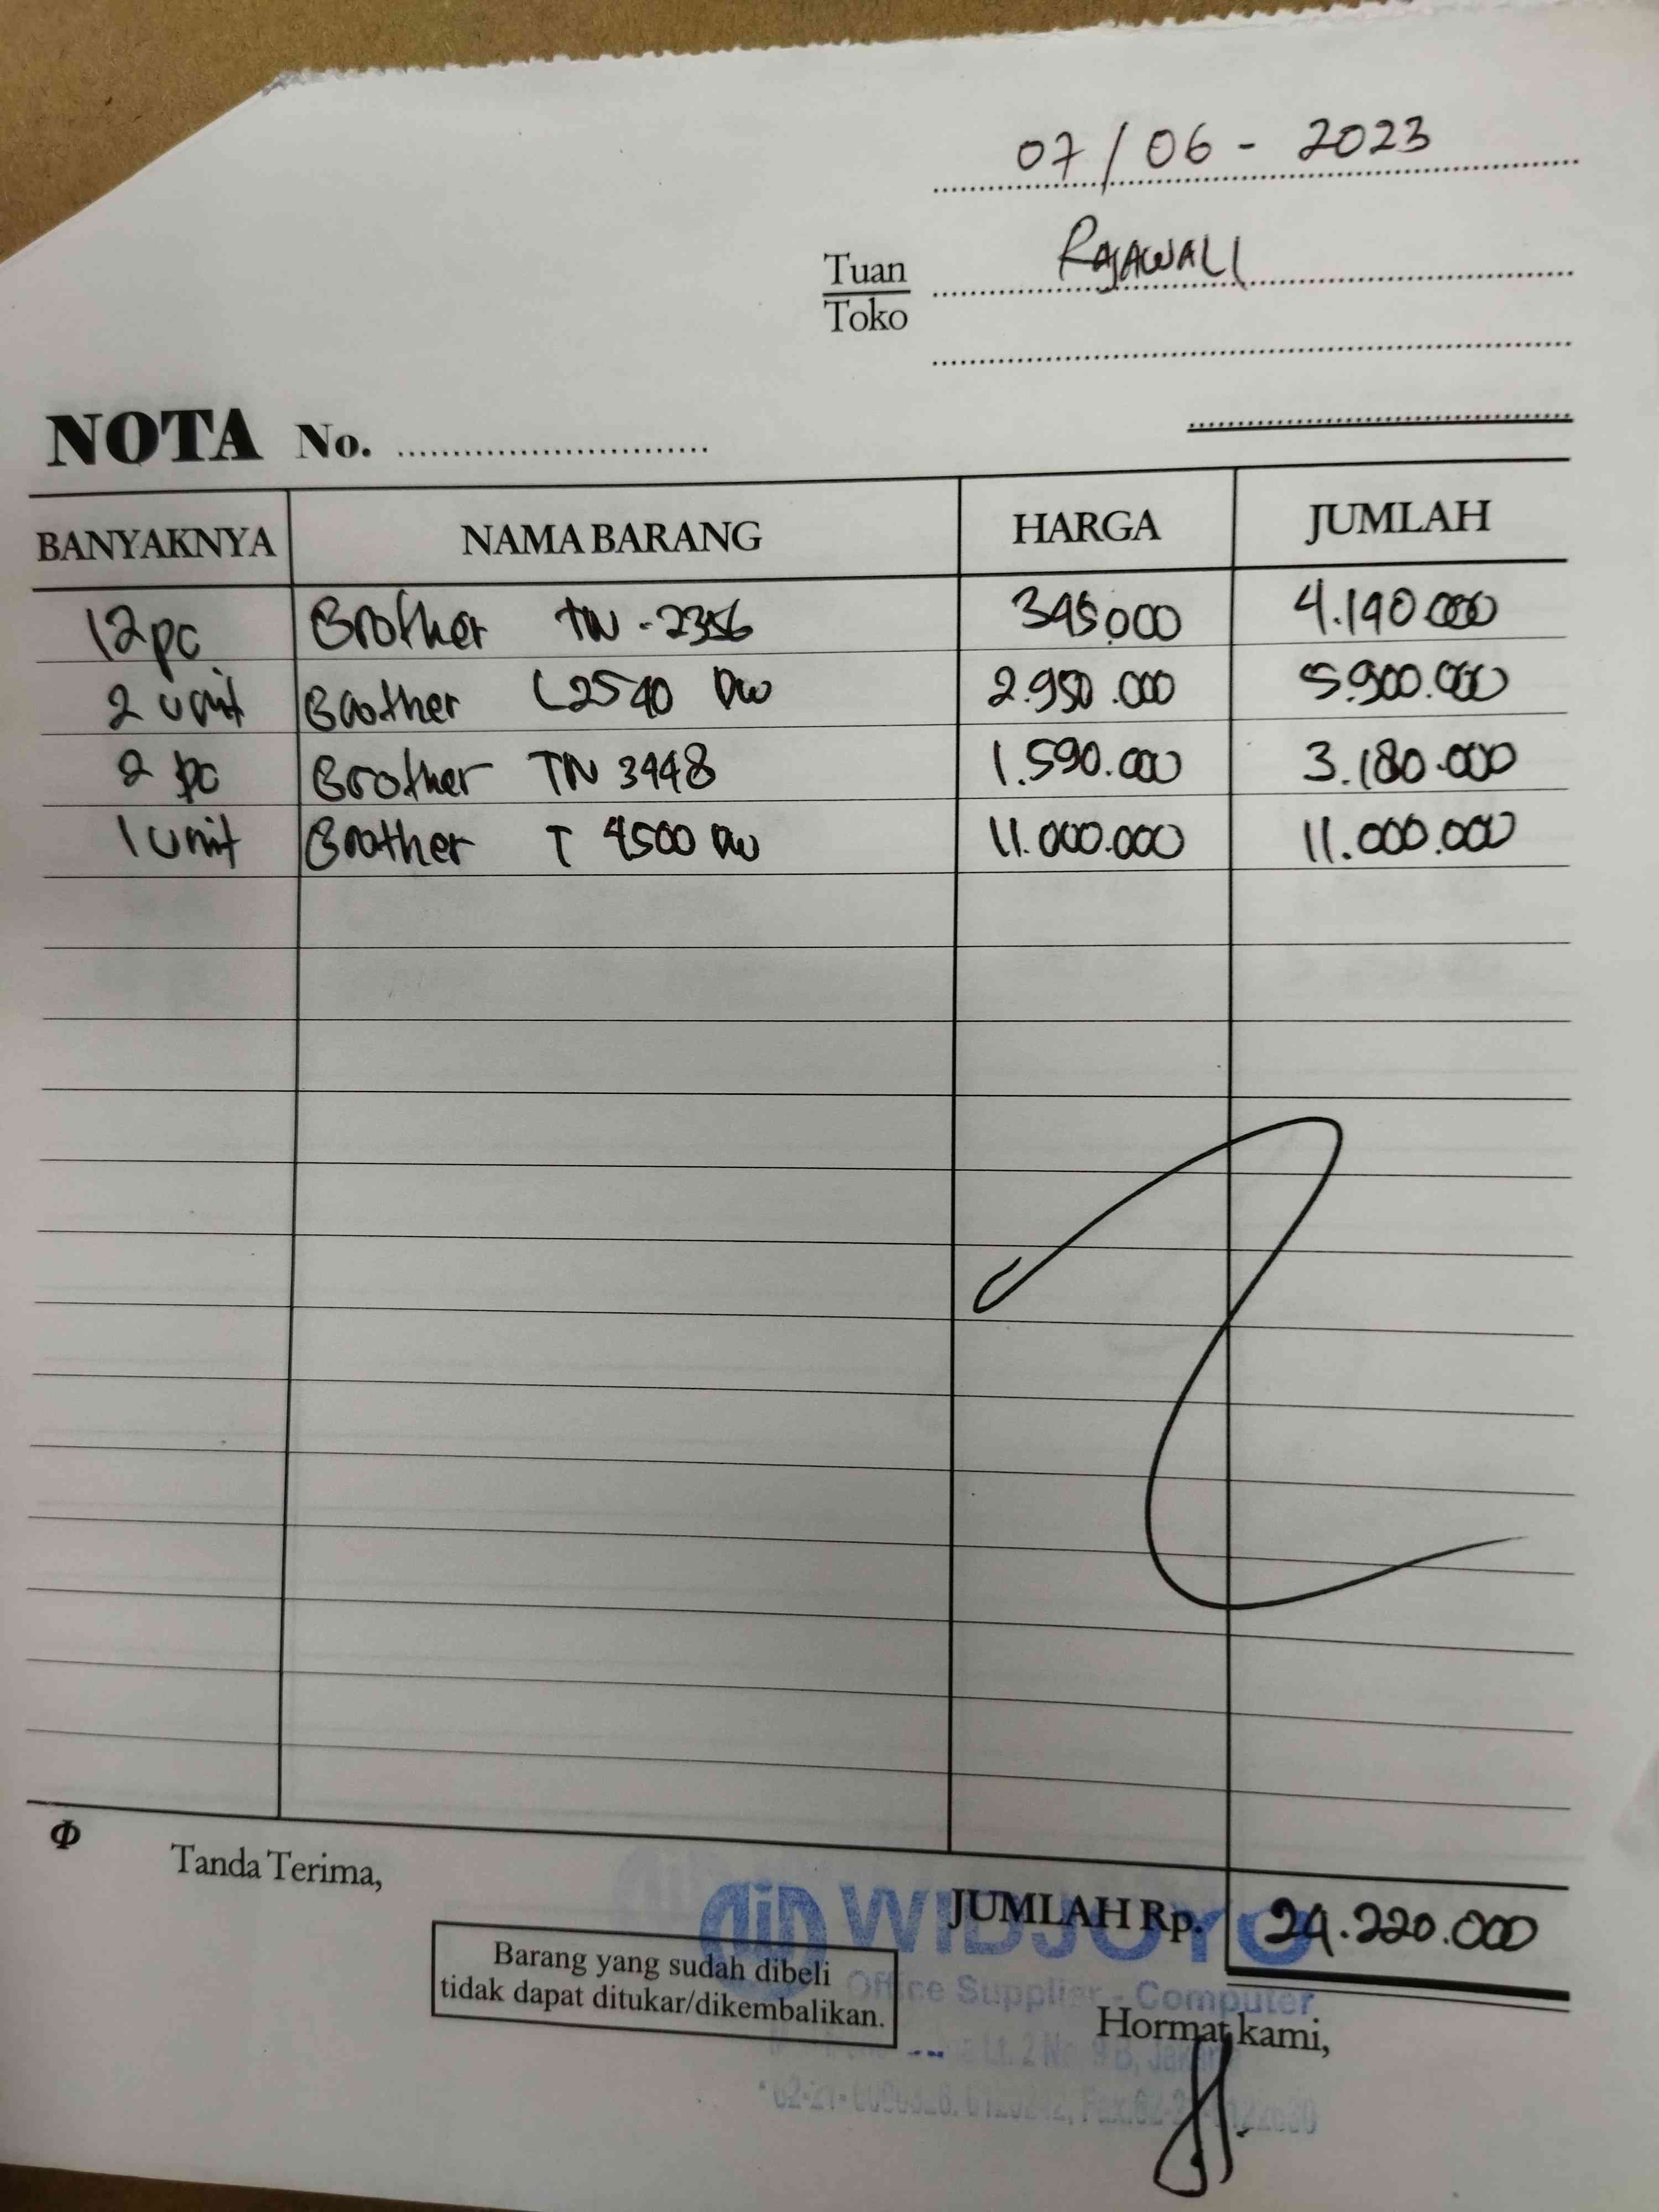 07/06 - 2023
Tuan RAJAWALI
Toko
NOTA No.
BANYAKNYA NAMA BARANG HARGA JUMLAH
12 pc Brother TN-2356 345.000 4.140.000
2 unit Brother L2540 DW 2.950.000 5.900.000
2 pc Brother TN 3448 1.590.000 3.180.000
1 unit Brother T 4500 DW 11.000.000 11.000.000
Φ Tanda Terima,
JUMLAH Rp. 24.220.000
WIDJOYO
Barang yang sudah dibeli
tidak dapat ditukar/dikembalikan.
Office Supplier - Computer
Hormat kami,
Lt. 2 No. 9 B, Jakarta